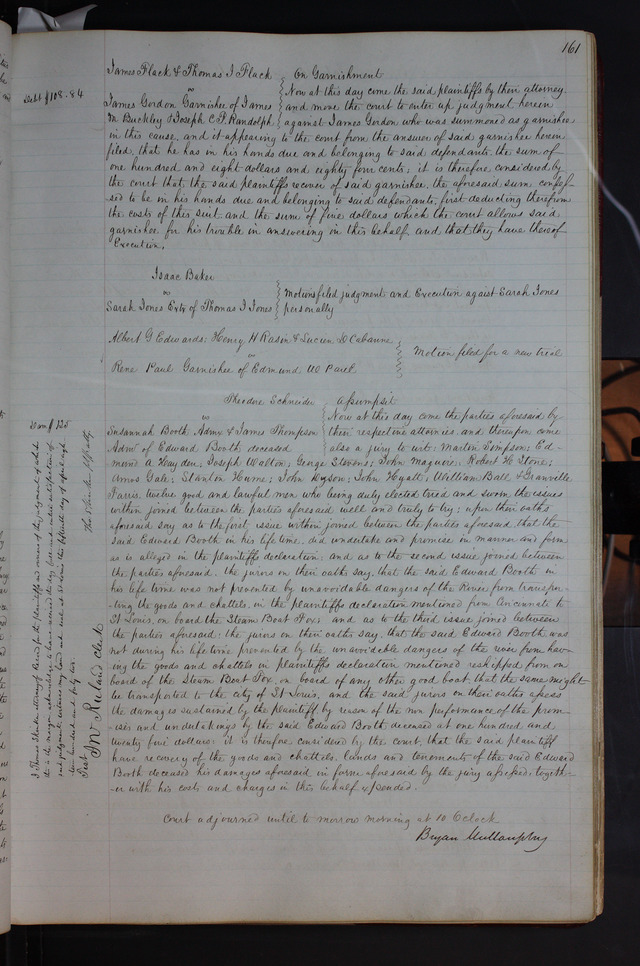 161
James Flack & Thomas I Flack } On Garnishment
vs
Debt $108.84
Now at this day come the said plaintiffs by their attorney
James Gordon Garnishee of James } and move the court to enter up judgment herein
M. Buckley & Joseph C. F. Randolph } against James Gordon who was summoned as garnishee
in this cause, and it appearing to the court from the answer of said garnishee herein
filed, that he has in his hands due and belonging to said defendants the sum of
one hundred and eight dollars and eighty four cents; it is therefore considered by
the court that the said plaintiffs recover of said garnishee, the aforesaid sum confes-
sed to be in his hands due and belonging to said defendants, first deducting therefrom
the costs of this suit and the sum of five dollars which the court allows said
garnishee for his trouble in answering in this behalf and that they have thereof
Execution.
Isaac Baker
vs
Sarah Jones Extx of Thomas I Jones } Motions filed judgment and Execution agaist Sarah Jones
personally
Albert G Edwards: Henry H Rasin & Lucien D Cabanne
vs
Rene Paul Garnishee of Edmund W Paul } Motion filed for a new trial
Theodore Schneider } Assumpsit
vs
Dam $125
Now at this day come the parties aforesaid by
Susannah Booth Admx & James Thompson } their respective attornies and thereupon come
Admr of Edward Booth deceased } also a jury to wit: Martin Simpson; Ed-
mund A Hayden; Joseph Walton; George Stevens; John Maguire; Robert H Stone;
Amos Gale; Stanton Hurne; John Dyson; John Hyatt; William Ball & Granville
Farris, twelve good and lawful men who being duly elected tried and sworn the issues
within joined between the parties aforesaid well and truly to try; upon their oaths
aforesaid say as to the first issue within joined between the parties aforesaid that the
said Edward Booth in his life time, did undertake and promise in manner and form
as is alleged in the plaintiffs declaration, and as to the second issue joined between
the parties aforesaid, the jurors on their oaths say, that the said Edward Booth in
his life time was not prevented by unavoidable dangers of the River from transpor-
-ting the goods and chattels, in the plaintiffs declaration mentioned from Cincinnati to
St Louis, on board the Steam Boat Fox; and as to the third issue joined between
the parties aforesaid: the jurors on their oaths say, that the said Edward Booth was
not during his life time prevented by the unavoidable dangers of the river from hav-
ing the goods and chattels in plaintiffs declaration mentioned reshipped from on
board of the Steam Boat Fox, on board of any other good boat, that the same might
be transported to the city of St Louis, and the said jurors on their oaths assess
the damages sustained by the plaintiff by reason of the non performance of the prom-
-ises and undertakings by the said Edward Booth deceased at one hundred and
twenty five dollars; it is therefore considered by the court, that the said plaintiff
have recovery of the goods and chattels, lands and tenements of the said Edward
Booth deceased his damages aforesaid in form aforesaid by the jury assessed, togeth-
-er with his costs and charges in this behalf expended.
Court adjourned until to morrow morning at 10 Oclock
Bryan Mullanphy
Test
Jno Ruland Clerk